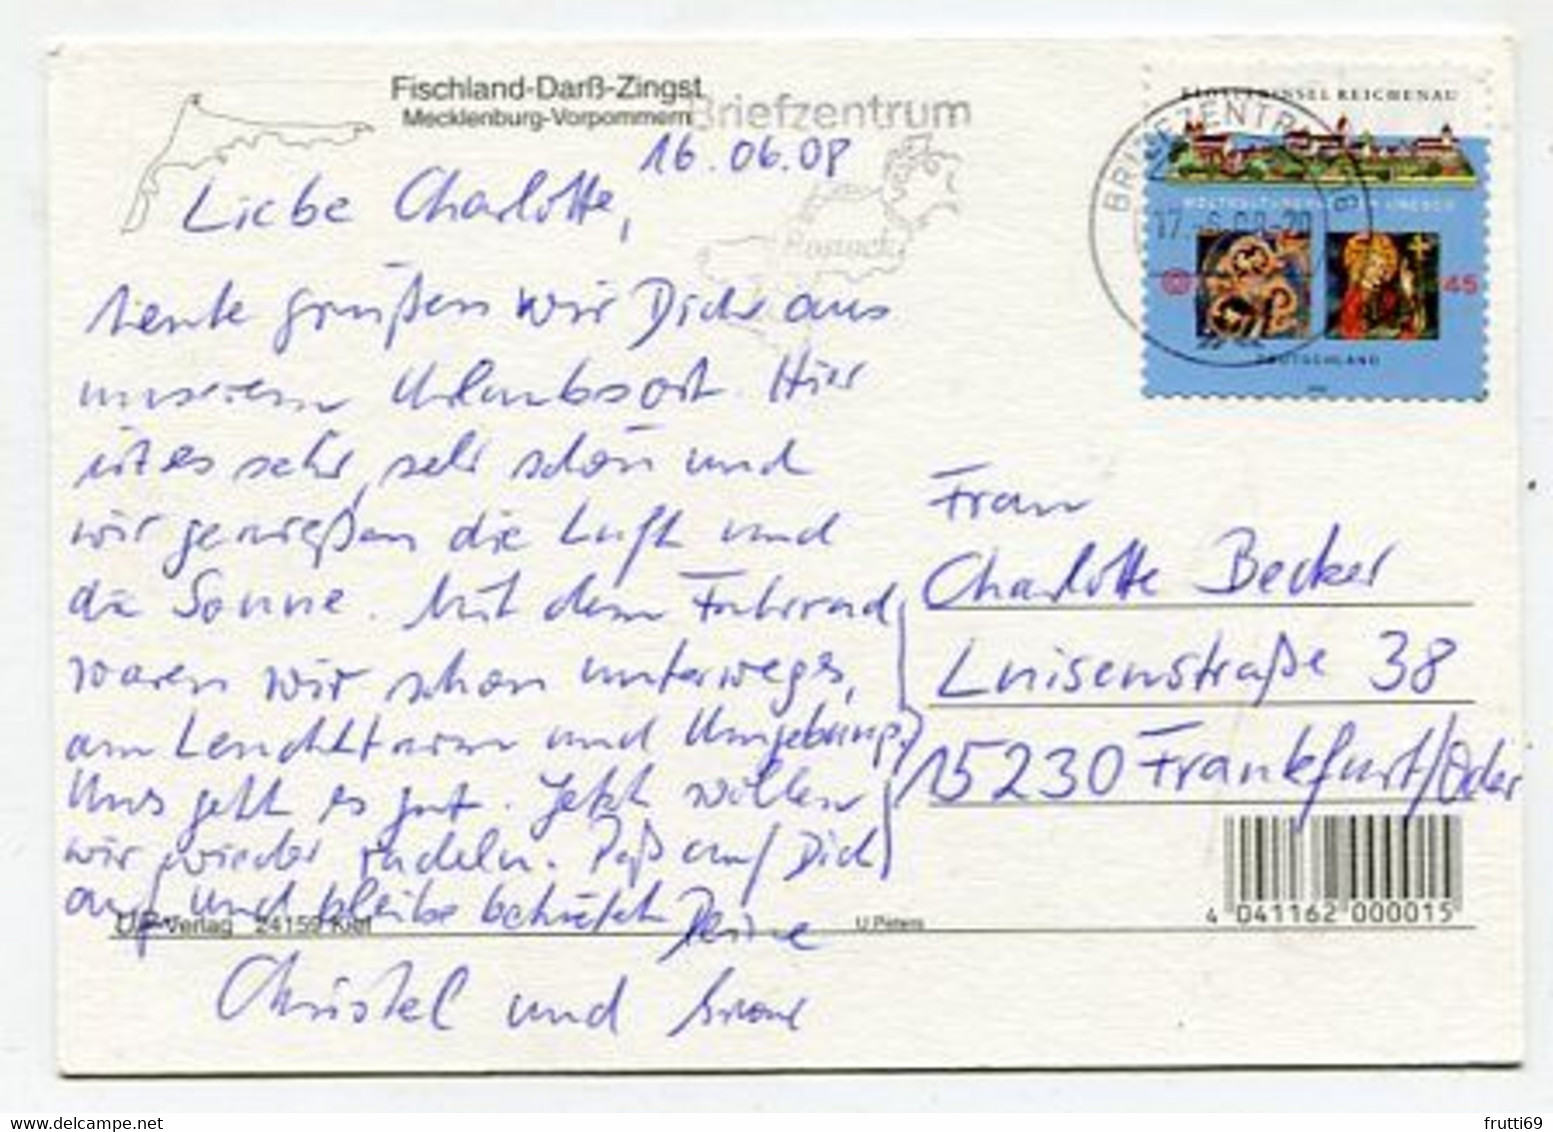 Fischland-Darß-Zingst
Mecklenburg-Vorpommern
Briefzentrum
16.06.08
Liebe Charlotte,
heute grüßen wir Dich aus
unserem Urlaubsort. Hier
ist es sehr, sehr schön und
wir genießen die Luft und
die Sonne. Mit dem Fahrrad
waren wir schon unterwegs,
am Leuchtturm und Umgebung.
Uns geht es gut. Jetzt wollen
wir wieder radeln. Paß auf Dich
auf und bleibe behütet Deine
Christel und
Verlag 24159 Kiel
U.Peters
KLOSTERINSEL REICHENAU
45
DEUTSCHLAND
BRIEFZENTRUM
17.-6.08-20
Rostock
Frau
Charlotte Becker
Luisenstraße 38
15230 Frankfurt/Oder
4 041162 000015
frutti69